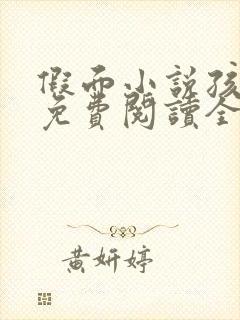 假面小說孩
免費閱讀全
黃妍婷